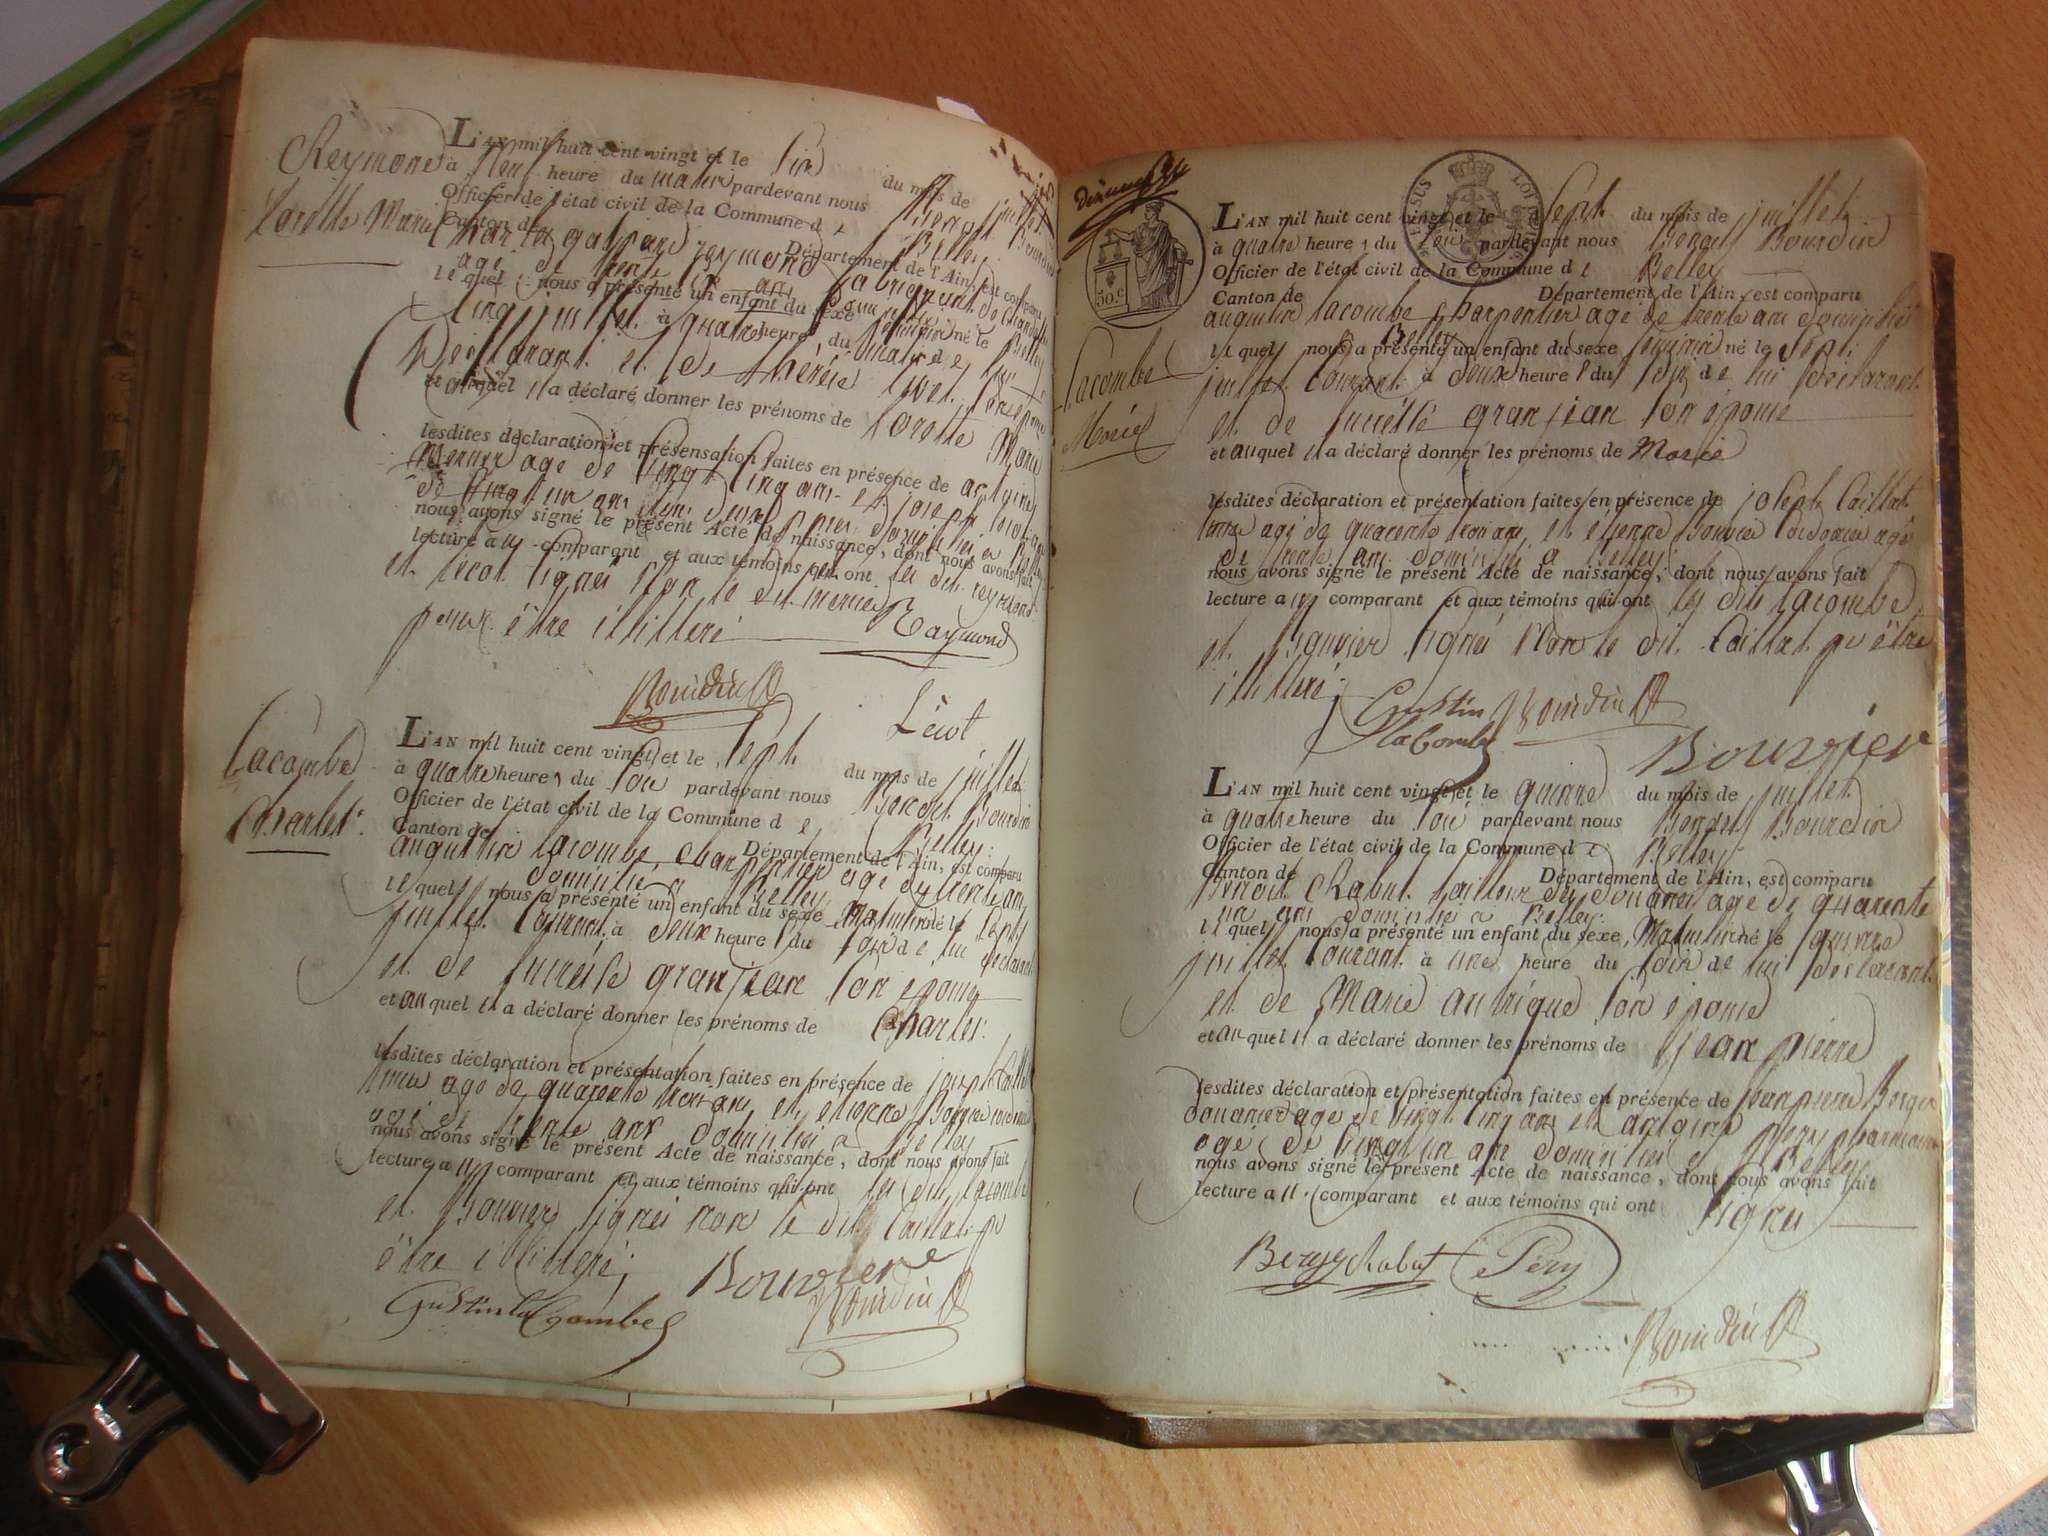 Reymond
Lorette Marie
L'AN mil huit cent vingt et le six du mois de juillet
à neuf heure du matin pardevant nous Benoit Bourdin
Officier de l'état civil de la Commune de Belley
Canton de Département de l'Ain, est comparu
Charles gaspard reymond fabriquant de
agé de trente six ans Belley
lequel nous a présenté un enfant du sexe féminin né le
cinq juillet à quatre heure, du matin de lui
Déclarant et de thérèse son épouse
et auquel il a déclaré donner les prénoms de Lorette Marie
lesdites déclaration et présensation faites en présence de antoine
mernier agé de vingt cinq ans et joseph Lécot agé
de vingt un ans tous deux domiciliés à Belley
nous avons signé le présent Acte de naissance, dont nous avons fait
lecture au comparant et aux témoins qui ont les dits reymond
et Lécot signés Non le dit mernier
pour être illitteré
Raymond
Bourdin
Lécot
Lacombe
Charles
L'AN mil huit cent vingt et le sept du mois de juillet
à quatre heure, du soir pardevant nous Benoit Bourdin
Officier de l'état civil de la Commune de Belley
Canton de Département de l'Ain, est comparu
augustin Lacombe, charpentier agé de trente ans
domicilié à Belley
lequel nous a présenté un enfant du sexe Masculin né le sept
juillet Courant à Deux heure du soir de lui déclarant
et de granjean son épouse
et auquel il a déclaré donner les prénoms de Charles
lesdites déclaration et présentation faites en présence de joseph Caillat
agé de quarente trois ans et etienne Bouvier cordonnier
agé de trente ans domiciliés à Belley
nous avons signé le présent Acte de naissance, dont nous avons fait
lecture au comparant et aux témoins qui ont les dits Lacombe
et Bouvier signés non le dit Caillat pr
être illitteré;
Bouvier
Gustin laCombe
Bourdin
50.C
LOUIS
Lacombe
Marie
L'AN mil huit cent vingt et le Sept du mois de juillet
à quatre heure, du soir pardevant nous Benoit Bourdin
Officier de l'état civil de la Commune de Belley
Canton de Département de l'Ain, est comparu
augustin Lacombe Charpentier agé de trente ans domicilié
Belley
lequel nous a présenté un enfant du sexe féminin né le Sept
juillet Courant à Deux heure du soir de lui Déclarant
et de granjean son épouse
et auquel il a déclaré donner les prénoms de Marie
lesdites déclaration et présentation faites en présence de joseph Caillat
agé de quarente trois ans, et etienne Bouvier Cordonnier agé
de trente ans domiciliés à Belley
nous avons signé le présent Acte de naissance, dont nous avons fait
lecture au comparant et aux témoins qui ont les dits Lacombe
et Bouvier signés Non le dit Caillat pr être
illitteré;
Gustin
laCombe
Bourdin
Bouvier
L'AN mil huit cent vingt et le quinze du mois de juillet
à quatre heure du soir pardevant nous Benoit Bourdin
Officier de l'état civil de la Commune de Belley
Canton de Département de l'Ain, est comparu
Benoit Rabut tailleur agé de quarente
un ans domicilié à Belley
lequel nous a présenté un enfant du sexe, Masculin né le quinze
juillet Courant à une heure du soir de lui Déclarant
et de Marie son épouse
et auquel il a déclaré donner les prénoms de jean pierre
lesdites déclaration et présentation faites en présence de jean pierre
douanier agé de vingt cinq ans et antoine pery
agé de vingt un ans domiciliés à Belley
nous avons signé le présent Acte de naissance, dont nous avons fait
lecture au comparant et aux témoins qui ont signés
Rabut
Péry
Bourdin